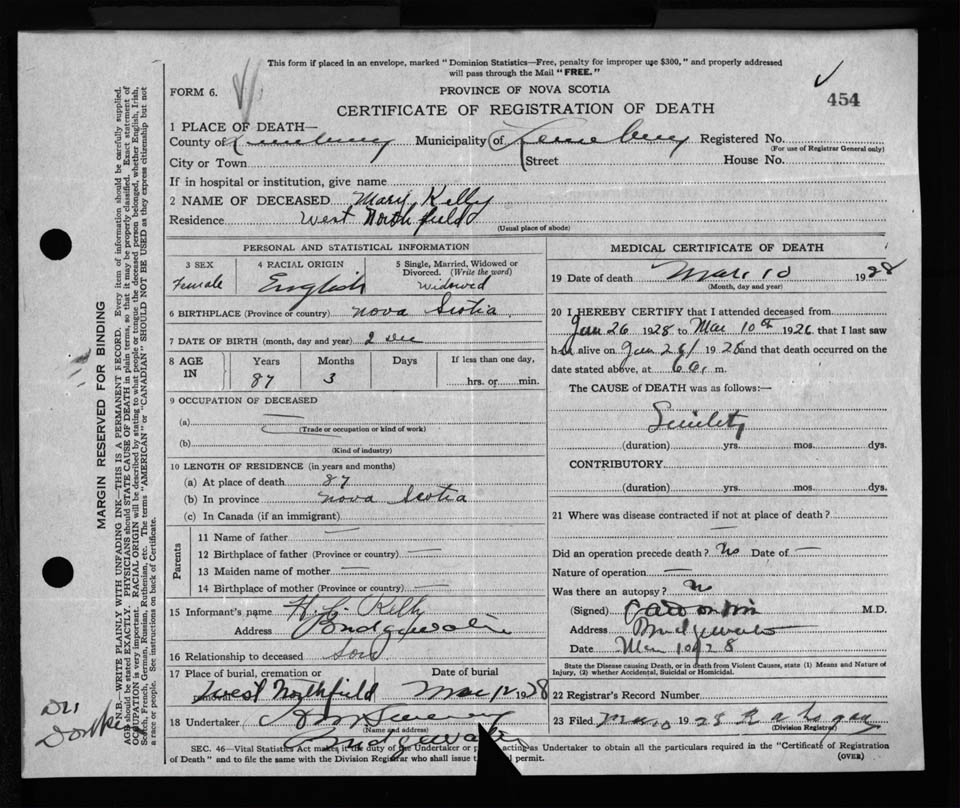 This form if placed in an envelope, marked "Dominion Statistics—Free, penalty for improper use $300," and properly addressed
will pass through the Mail "FREE."
FORM 6.
PROVINCE OF NOVA SCOTIA
CERTIFICATE OF REGISTRATION OF DEATH
454
1 PLACE OF DEATH—
County of Lunenburg Municipality of Lunenburg Registered No.
(For use of Registrar General only)
City or Town Street House No.
If in hospital or institution, give name
2 NAME OF DECEASED Mary Kelly
Residence West Northfield
(Usual place of abode)
PERSONAL AND STATISTICAL INFORMATION
3 SEX Female
4 RACIAL ORIGIN English
5 Single, Married, Widowed or
Divorced. (Write the word)
Widowed
6 BIRTHPLACE (Province or country) Nova Scotia
7 DATE OF BIRTH (month, day and year) 2 Dec
8 AGE IN Years Months Days If less than one day,
87 3 hrs. or min.
9 OCCUPATION OF DECEASED
(a) —
(Trade or occupation or kind of work)
(b)
(Kind of industry)
10 LENGTH OF RESIDENCE (in years and months)
(a) At place of death 87
(b) In province Nova Scotia
(c) In Canada (if an immigrant)
Parents
11 Name of father —
12 Birthplace of father (Province or country) —
13 Maiden name of mother —
14 Birthplace of mother (Province or country) —
15 Informant's name Kelly
Address Bridgewater
16 Relationship to deceased Son
17 Place of burial, cremation or Date of burial
West Northfield Mar 12 1928
18 Undertaker
(Name and address)
Bridgewater
MEDICAL CERTIFICATE OF DEATH
19 Date of death Mar. 10 1928
(Month, day and year)
20 I HEREBY CERTIFY that I attended deceased from
Jan 26 1928 to Mar 10th 1926 that I last saw
her alive on Jan 26/ 1928 and that death occurred on the
date stated above, at m.
The CAUSE of DEATH was as follows:—
Senility
(duration) yrs. mos. dys.
CONTRIBUTORY
(duration) yrs. mos. dys.
21 Where was disease contracted if not at place of death?
—
Did an operation precede death? No Date of —
Nature of operation —
Was there an autopsy? No
(Signed) M.D.
Address Bridgewater
Date Mar 10/28
State the Disease causing Death, or in death from Violent Causes, state (1) Means and Nature of
Injury, (2) whether Accidental, Suicidal or Homicidal.
22 Registrar's Record Number
23 Filed 1928
(Division Registrar)
SEC. 46—Vital Statistics Act makes it the duty of the Undertaker or acting as Undertaker to obtain all the particulars required in the "Certificate of Registration
of Death" and to file the same with the Division Registrar who shall issue permit.
(OVER)
MARGIN RESERVED FOR BINDING
N.B.—WRITE PLAINLY WITH UNFADING INK—THIS IS A PERMANENT RECORD. Every item of information should be carefully supplied.
AGE should be stated EXACTLY. PHYSICIANS should STATE CAUSE OF DEATH in plain terms, so that it may be properly classified. Exact statement of
OCCUPATION is very important. RACIAL ORIGIN will be described by stating to what people or tongue the deceased person belonged, whether English, Irish,
Scotch, French, German, Russian, Ruthenian, etc. The terms "AMERICAN" or "CANADIAN" SHOULD NOT BE USED as they express citizenship but not
a race or people. See instructions on back of Certificate.